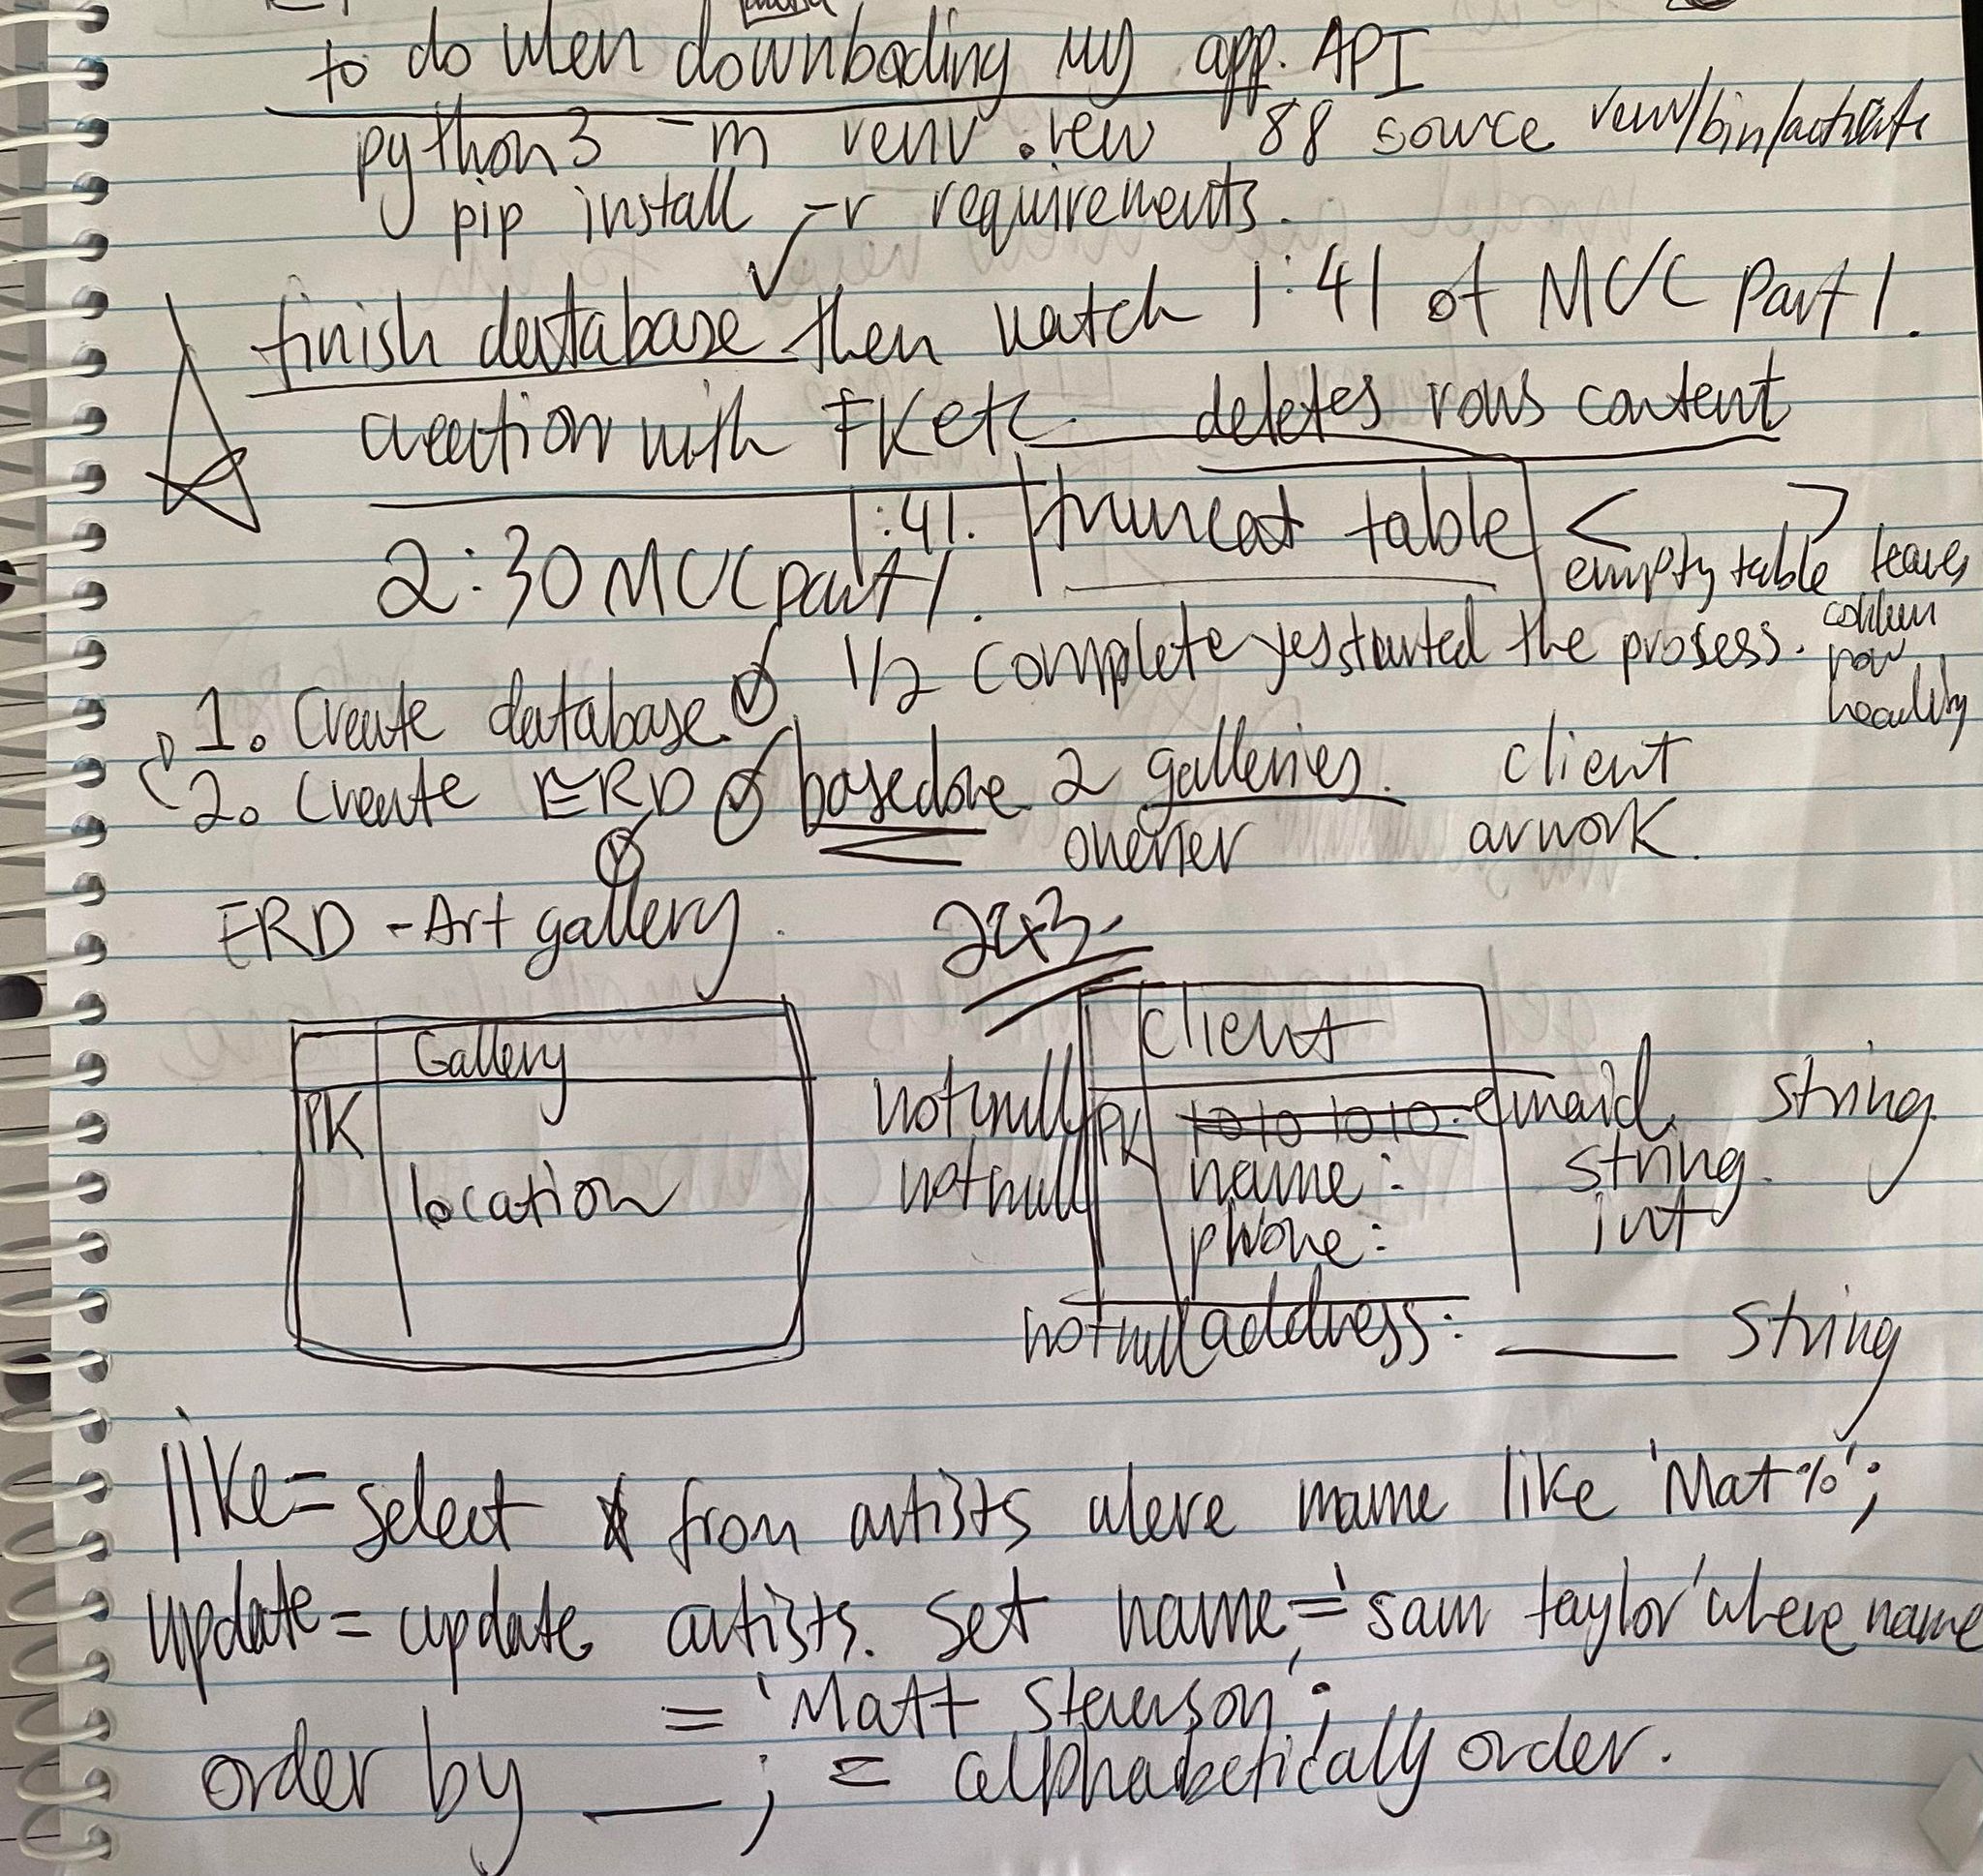 to do when downloading my app. API
python3 -m venv .venv && source venv/bin/activate
pip install -r requirements.
finish database then watch 1:41 of MVC part 1.
creation with FK etc. deletes rows content
1:41. truncat table < >
2:30 MVC part 1. empty table leaves
column
row
heading
1/2 complete yes started the process.
1. Create database.
2. Create ERD based one 2 galleries. client
owner arwork.
ERD - Art gallery.
2&3.
Gallery
PK
location
client
not null PK 1010 1010. email. string
not null name: string.
phone: int
not null address: ___ string
like = select * from artists where name like 'Mat%';
update = update artists. set name = 'sam taylor' where name
= 'Matt Stewson';
order by ___; = alphabetically order.